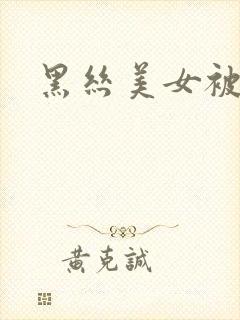 黑丝美女被
黄克誠